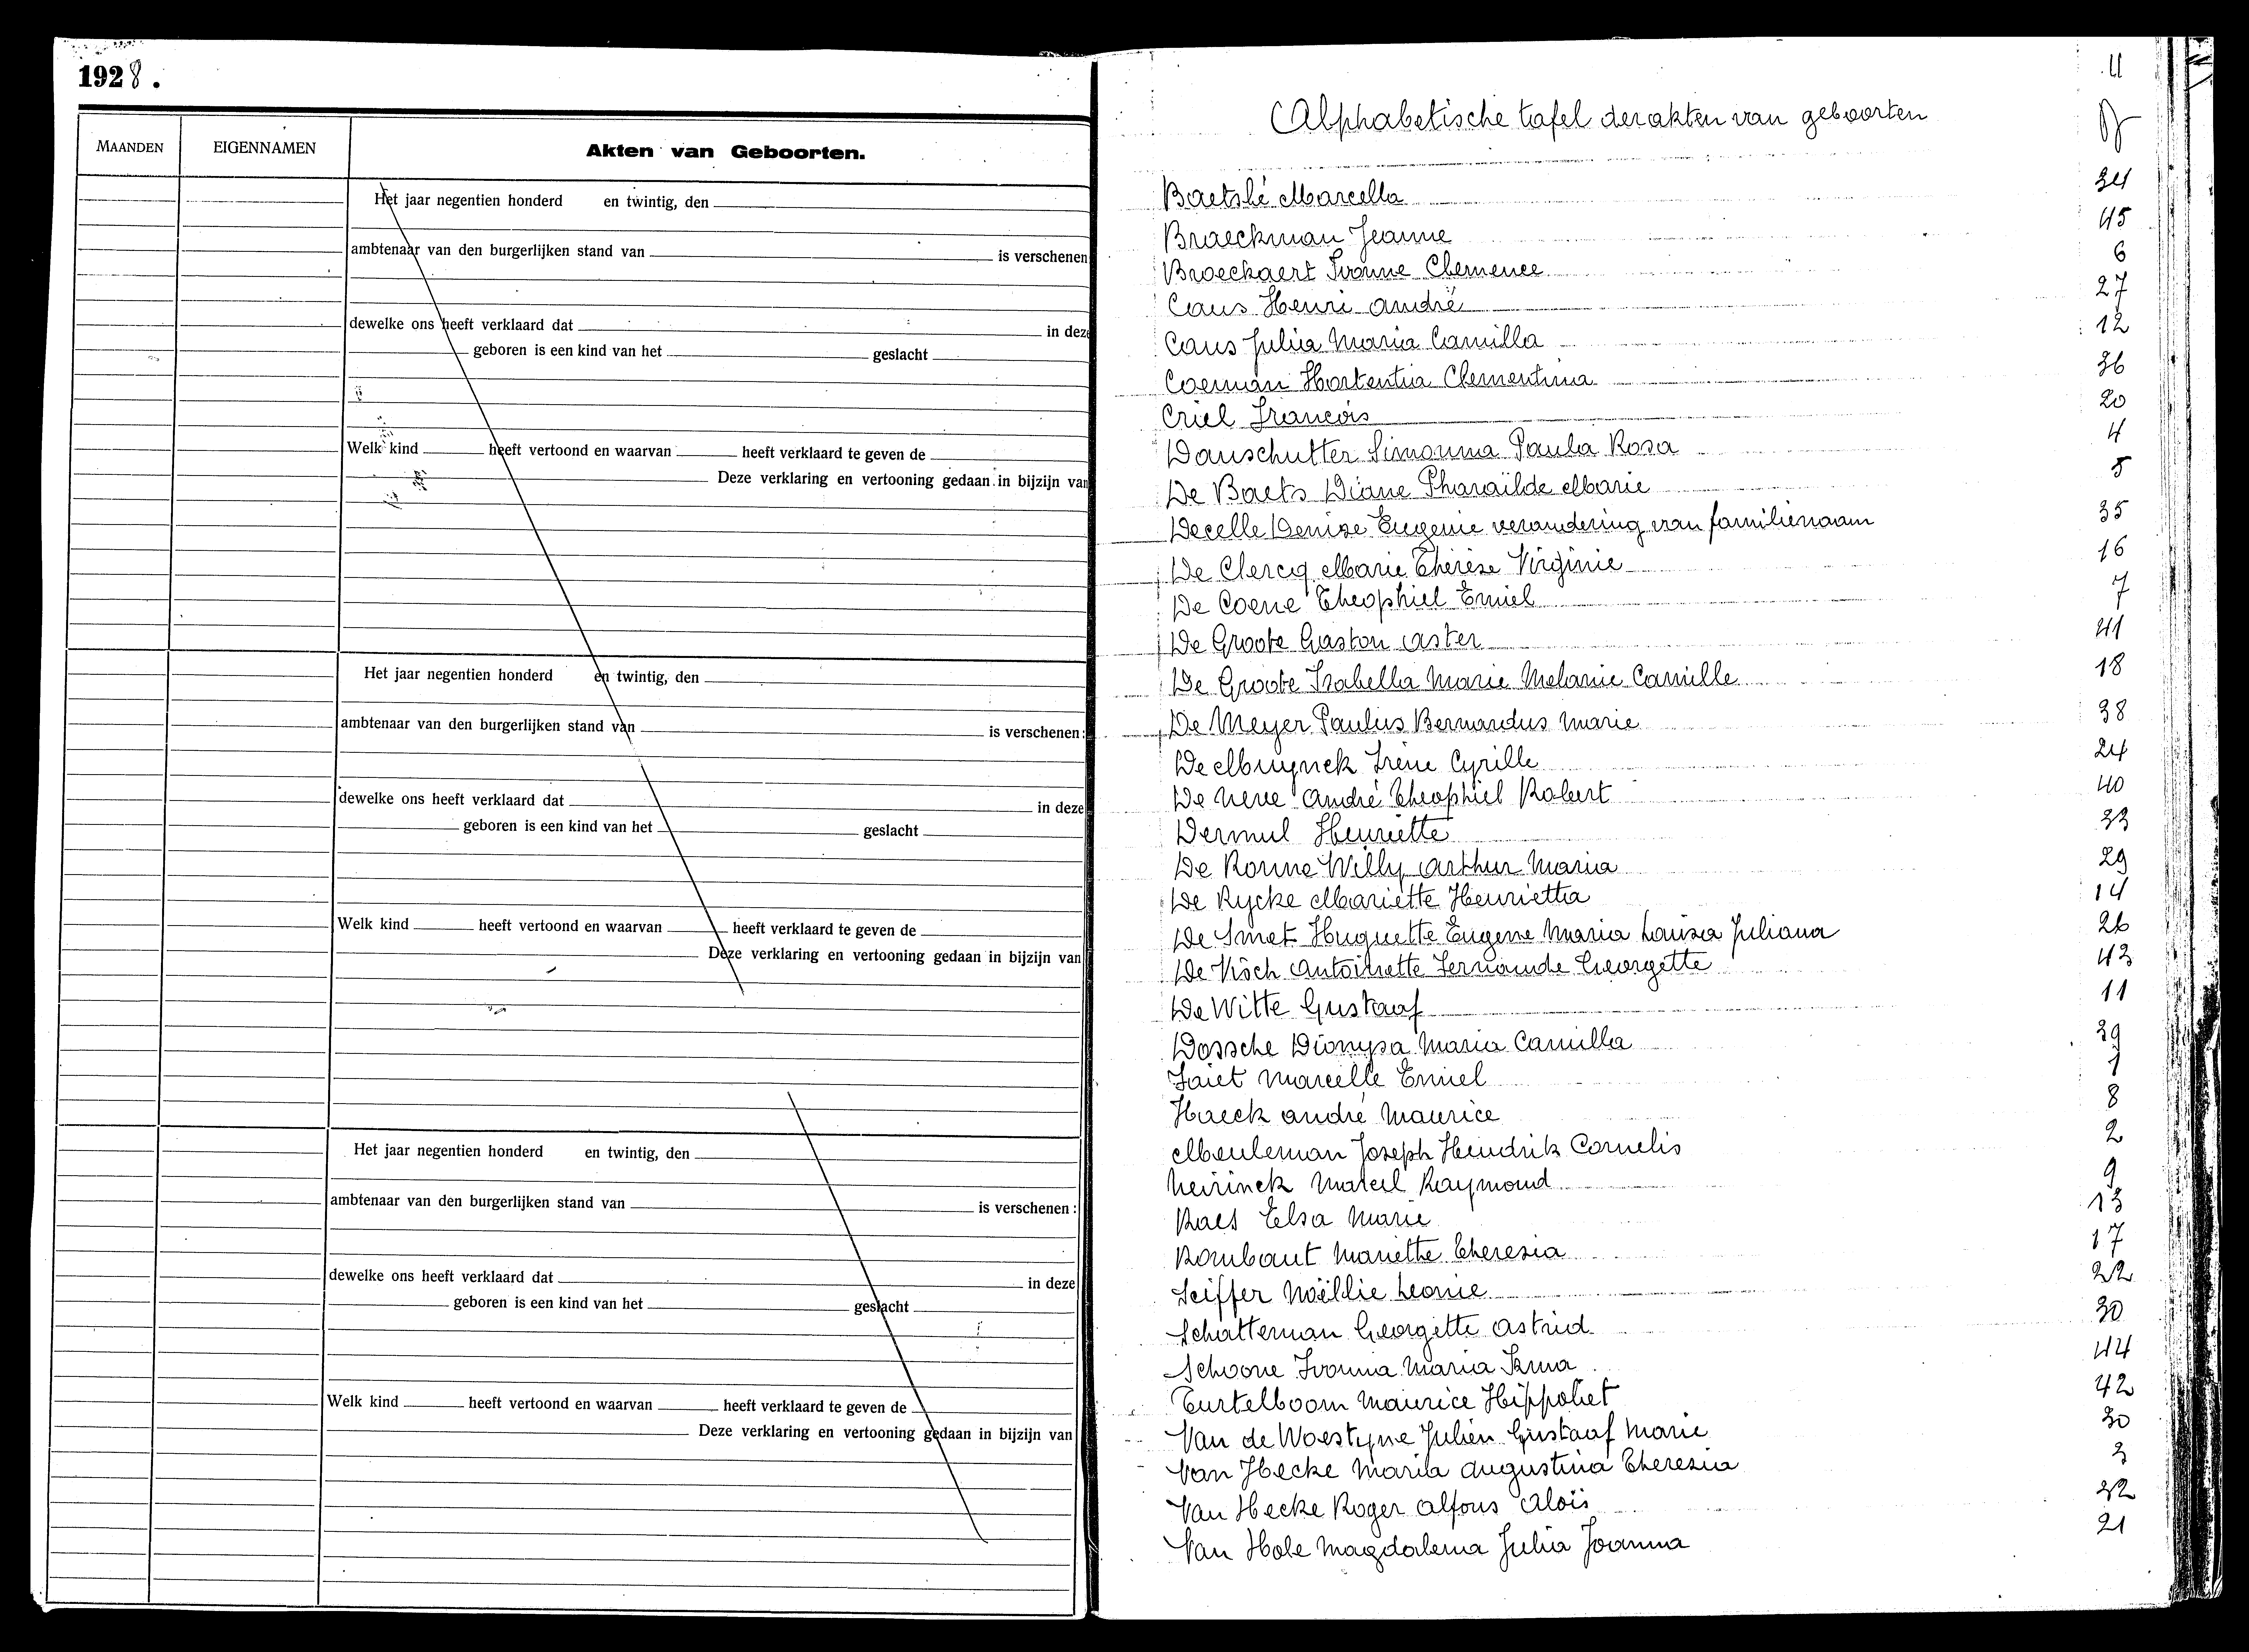 1928.
MAANDEN
EIGENNAMEN
Akten van Geboorten.
Het jaar negentien honderd en twintig, den
ambtenaar van den burgerlijken stand van is verschenen
dewelke ons heeft verklaard dat in deze
geboren is een kind van het geslacht
Welk kind heeft vertoond en waarvan heeft verklaard te geven de
Deze verklaring en vertooning gedaan in bijzijn van
Het jaar negentien honderd en twintig, den
ambtenaar van den burgerlijken stand van is verschenen:
dewelke ons heeft verklaard dat in deze
geboren is een kind van het geslacht
Welk kind heeft vertoond en waarvan heeft verklaard te geven de
Deze verklaring en vertooning gedaan in bijzijn van
Het jaar negentien honderd en twintig, den
ambtenaar van den burgerlijken stand van is verschenen:
dewelke ons heeft verklaard dat in deze
geboren is een kind van het geslacht
Welk kind heeft vertoond en waarvan heeft verklaard te geven de
Deze verklaring en vertooning gedaan in bijzijn van
11
Alphabetische tafel der akten van geboorten
Baetslé Marcella 34
Braeckman Jeanne 45
Broeckaert Ivonne Clemence 6
Caus Henri André 27
Caus Julia Maria Camilla 12
Coeman Hortentia Clementina 36
Criel Francois 20
Danschutter Simonna Paula Rosa 4
De Baets Diane Pharaïlde Marie 5
Decelle Denise Eugenie verandering van familienaam 35
De Clercq Marie Thérèse Virginie 16
De Coene Theophiel Emiel 7
De Groote Gaston Aster 41
De Groote Isabella Marie Melanie Camille 18
De Meyer Paulus Bernardus Marie 38
De Muynck Irène Cyrille 24
De Neve André Theophiel Robert 40
Dermul Henriette 33
De Ronne Willy Arthur Maria 29
De Rycke Mariette Henrietta 14
De Smet Huguette Eugene Maria Louisa Juliana 26
De Visch Antoinette Fernande Georgette 43
De Witte Gustaaf 11
Dossche Dionysa Maria Camilla 39
Faict Marcelle Emiel 1
Haeck André Maurice 8
Meuleman Joseph Hendrik Cornelis 2
Neirinck Marcel Raymond 9
Raes Elsa Marie 13
Rombaut Mariette Theresia 17
Seiffer Noëllie Leonie 22
Schatteman Georgette Astrid 30
Schoone Ivonna Maria Irma 44
Turtelboom Maurice Hippoliet 42
Van de Woestyne Julien Gustaaf Marie 30
Van Hecke Maria Augustina Theresia 3
Van Hecke Roger Alfons Alois 32
Van Hole Magdalena Julia Joanna 21